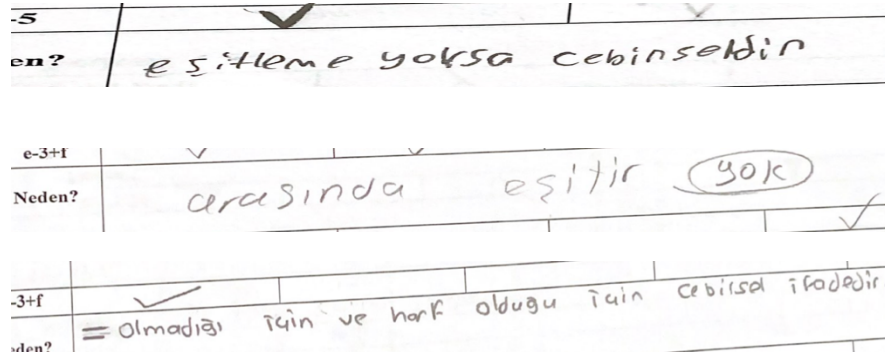 -5
en? eşitleme yoksa cebinseldin
e-3+f
Neden? arasında eşitir yok
-3+f
= Olmadığı için ve harf olduğu için cebirsel ifadedir
eden?